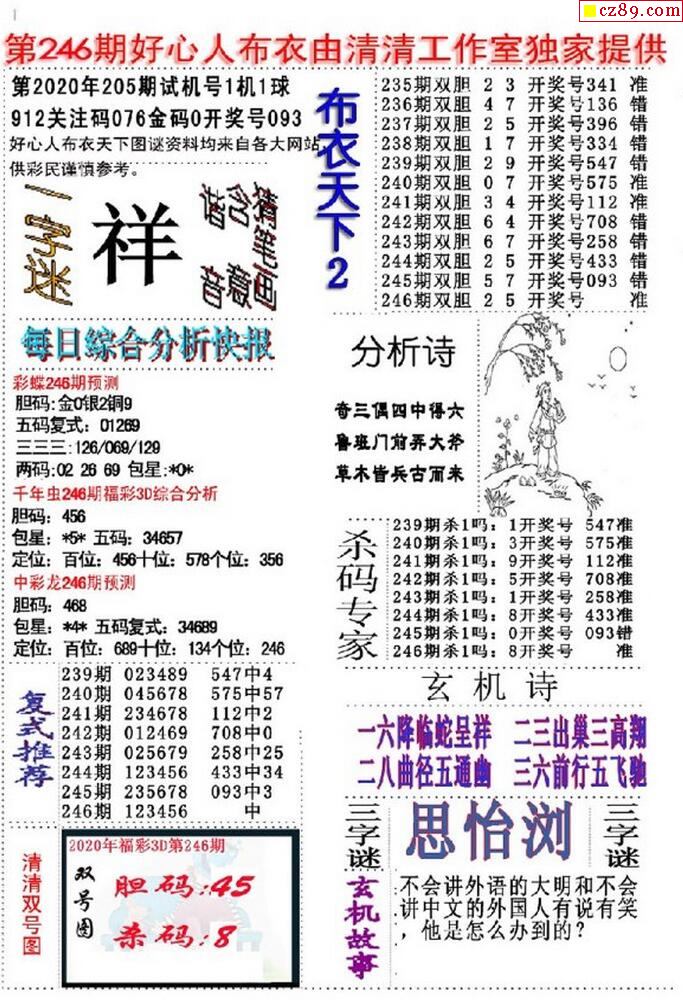 cz89.com
第246期好心人布衣由清清工作室独家提供
第2020年205期试机号1机1球
912关注码076金码0开奖号093
好心人布衣天下图谜资料均来自各大网站
供彩民谨慎参考。
一字迷
祥
猜笔画
含意
谐音
布衣天下2
235期双胆 2 3 开奖号341 准
236期双胆 4 7 开奖号136 错
237期双胆 2 5 开奖号396 错
238期双胆 1 7 开奖号334 错
239期双胆 2 9 开奖号547 错
240期双胆 0 7 开奖号575 准
241期双胆 3 4 开奖号112 准
242期双胆 6 4 开奖号708 错
243期双胆 6 7 开奖号258 错
244期双胆 2 5 开奖号433 错
245期双胆 5 7 开奖号093 错
246期双胆 2 5 开奖号 准
每日综合分析快报
彩蝶246期预测
胆码:金0银2铜9
五码复式：01269
三三三:126/069/129
两码:02 26 69 包星:*0*
千年虫246期福彩3D综合分析
胆码：456
包星：*5* 五码：34657
定位：百位：456十位：578个位：356
中彩龙246期预测
胆码：468
包星：*4* 五码复式：34689
定位：百位：689十位：134个位：246
分析诗
奇三偶四中得六
鲁班门前弄大斧
草木皆兵古而来
杀码专家
239期杀1吗：1开奖号 547准
240期杀1吗：3开奖号 575准
241期杀1吗：9开奖号 112准
242期杀1吗：5开奖号 708准
243期杀1吗：1开奖号 258准
244期杀1吗：8开奖号 433准
245期杀1吗：0开奖号 093错
246期杀1吗：8开奖号 准
复式推荐
239期 023489 547中4
240期 045678 575中57
241期 234678 112中2
242期 012469 708中0
243期 025679 258中25
244期 123456 433中34
245期 235678 093中3
246期 123456 中
玄机诗
一六降临蛇呈祥 二三出巢三高翔
二八曲径五通幽 三六前行五飞驰
三字谜
思怡浏
三字谜
清清双号图
2020年福彩3D第246期
双号图
胆码:45
杀码:8
玄机故事
不会讲外语的大明和不会
讲中文的外国人有说有笑
，他是怎么办到的?